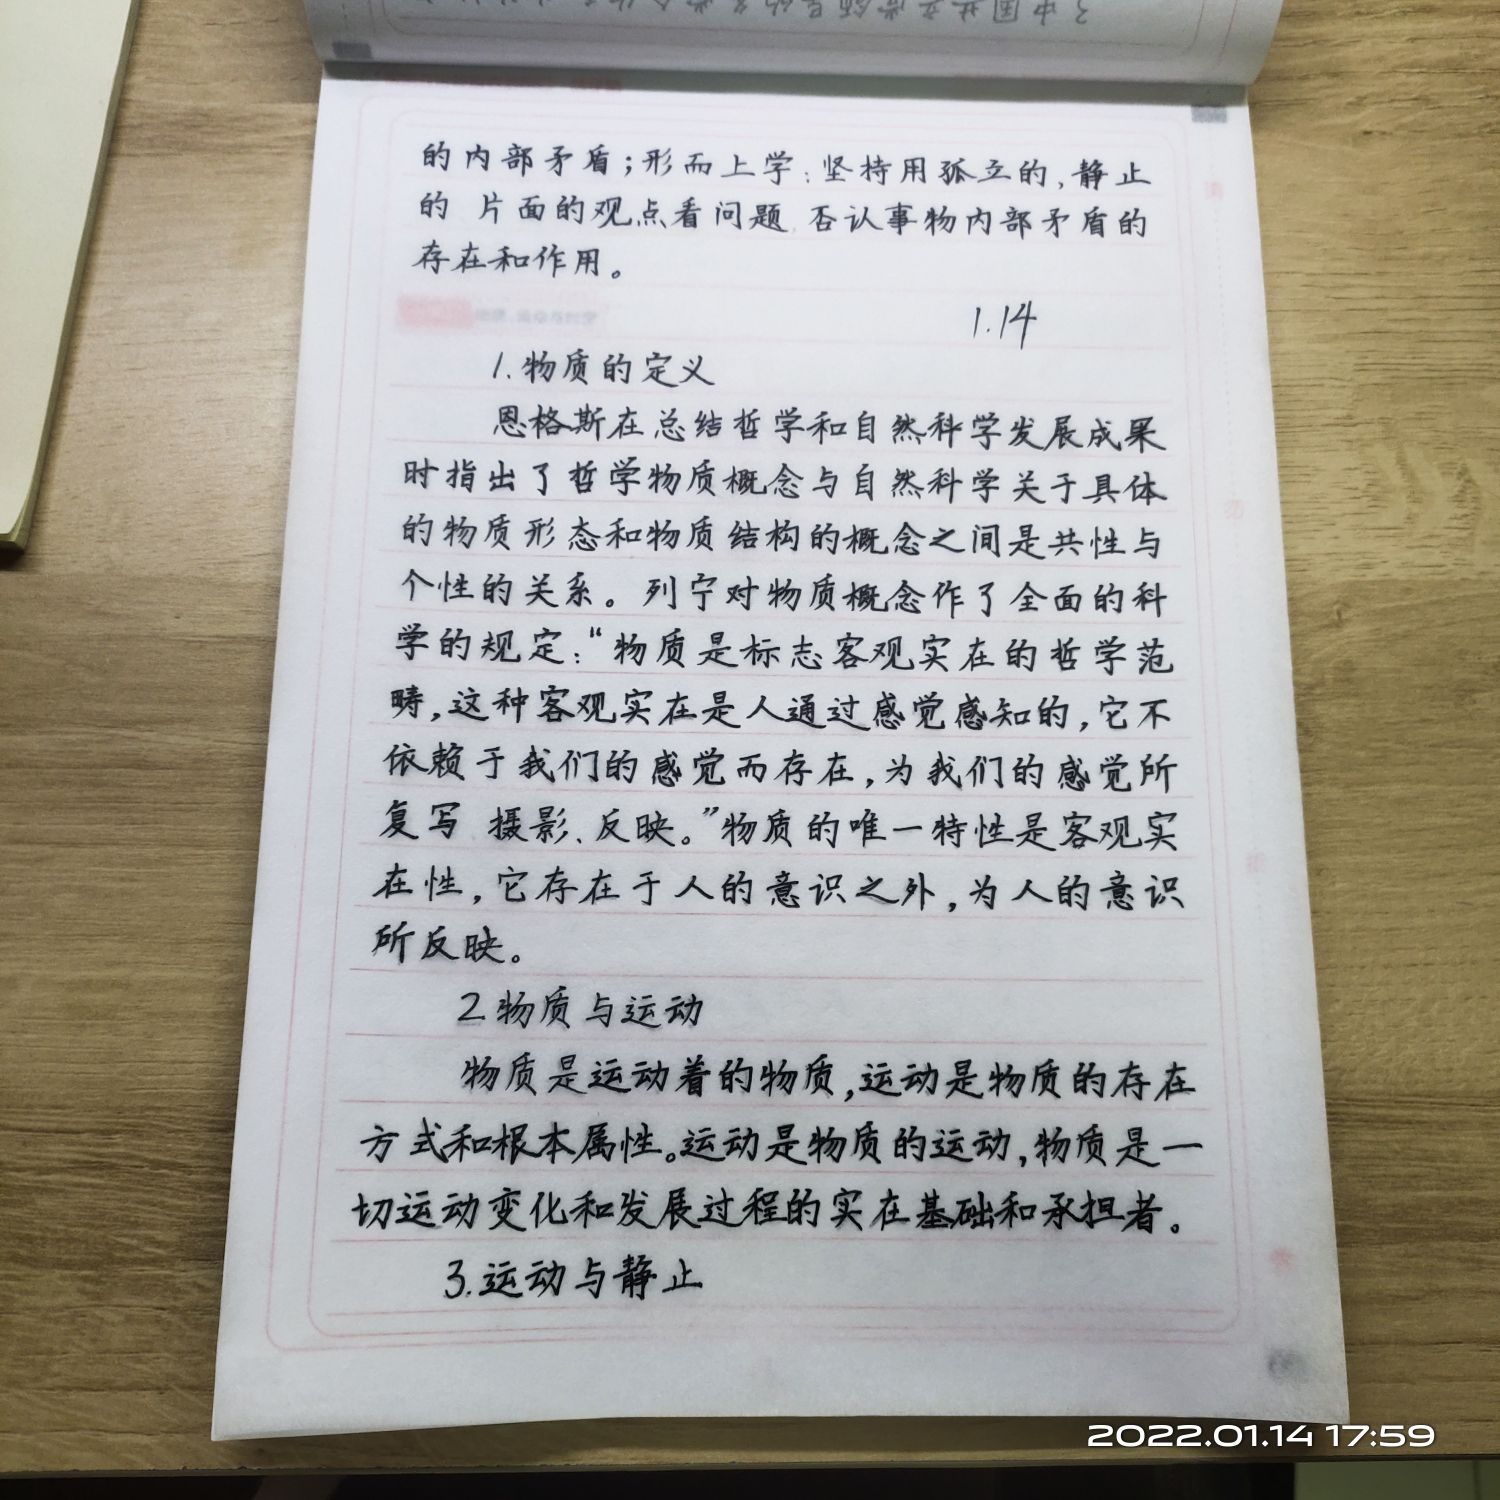 的内部矛盾；形而上学：坚持用孤立的，静止
的 片面的观点看问题，否认事物内部矛盾的
存在和作用。
1.14
1.物质的定义
恩格斯在总结哲学和自然科学发展成果
时指出了哲学物质概念与自然科学关于具体
的物质形态和物质结构的概念之间是共性与
个性的关系。列宁对物质概念作了全面的科
学的规定：“物质是标志客观实在的哲学范
畴，这种客观实在是人通过感觉感知的，它不
依赖于我们的感觉而存在，为我们的感觉所
复写 摄影、反映。”物质的唯一特性是客观实
在性，它存在于人的意识之外，为人的意识
所反映。
2.物质与运动
物质是运动着的物质，运动是物质的存在
方式和根本属性。运动是物质的运动，物质是一
切运动变化和发展过程的实在基础和承担者。
3.运动与静止
2022.01.14 17:59